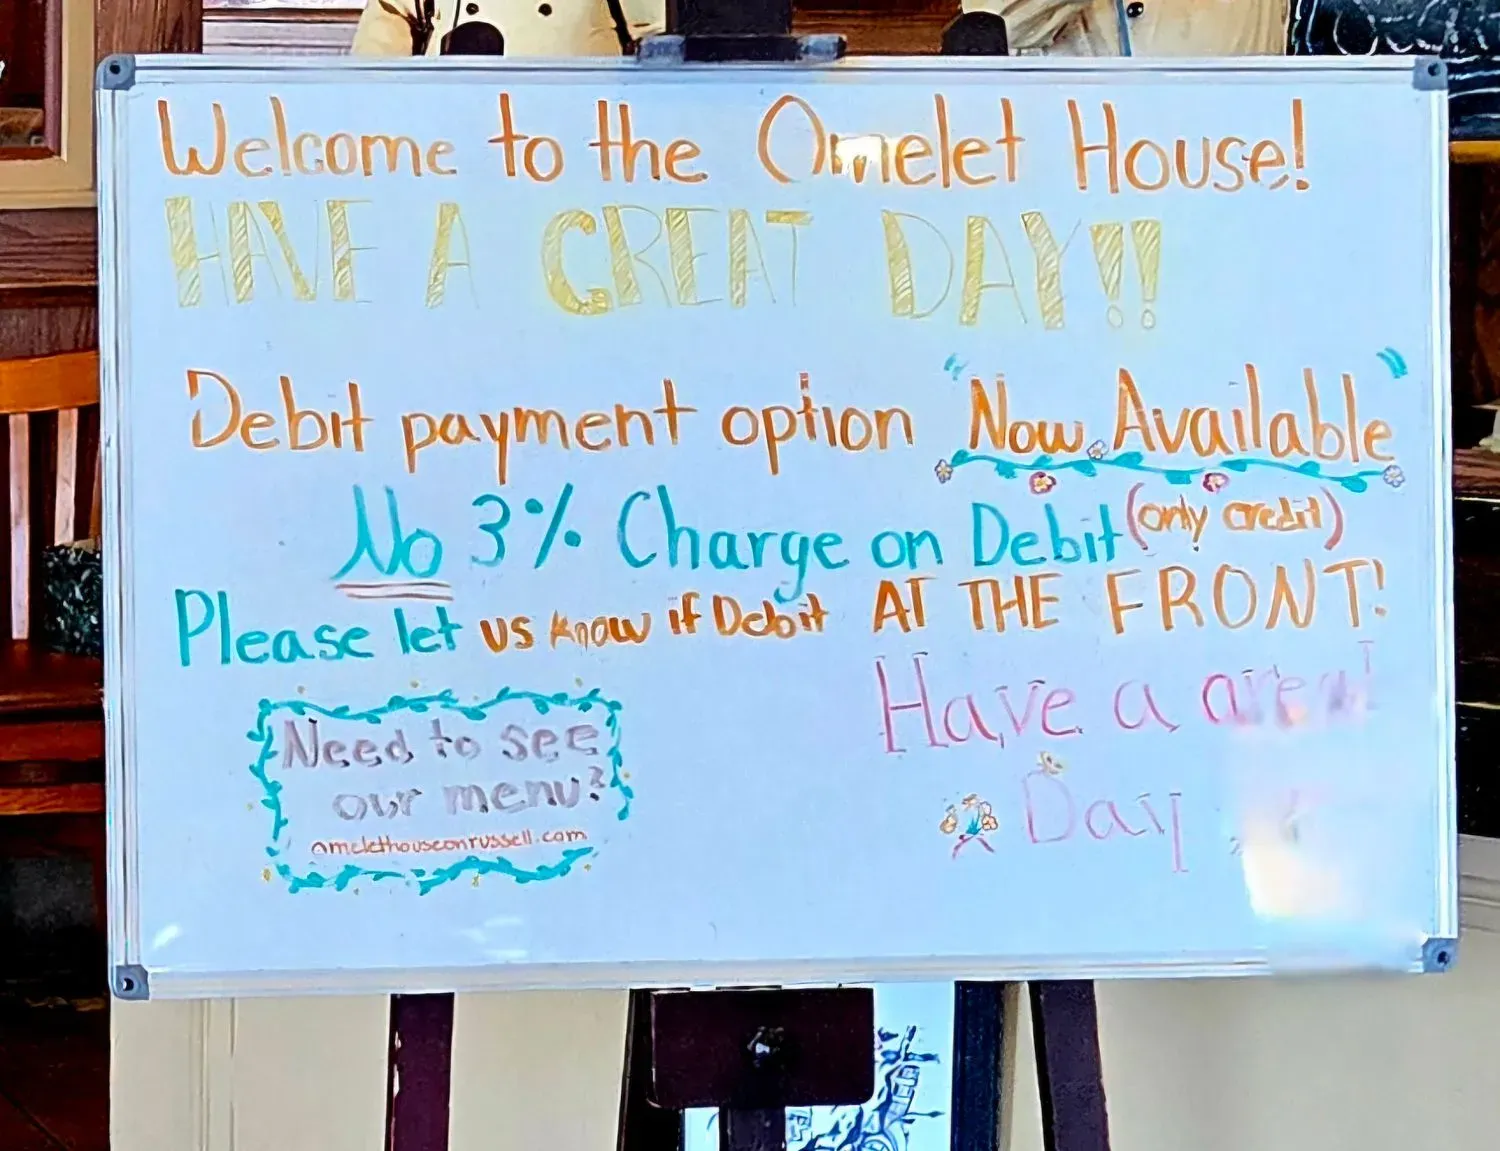 Welcome to the Omelet House!
HAVE A GREAT DAY!!
Debit payment option "Now Available"
No 3% Charge on Debit (only credit)
Please let us know if Debit AT THE FRONT!
Need to see
our menu?
omelethouseonrussell.com
Have a great
Day